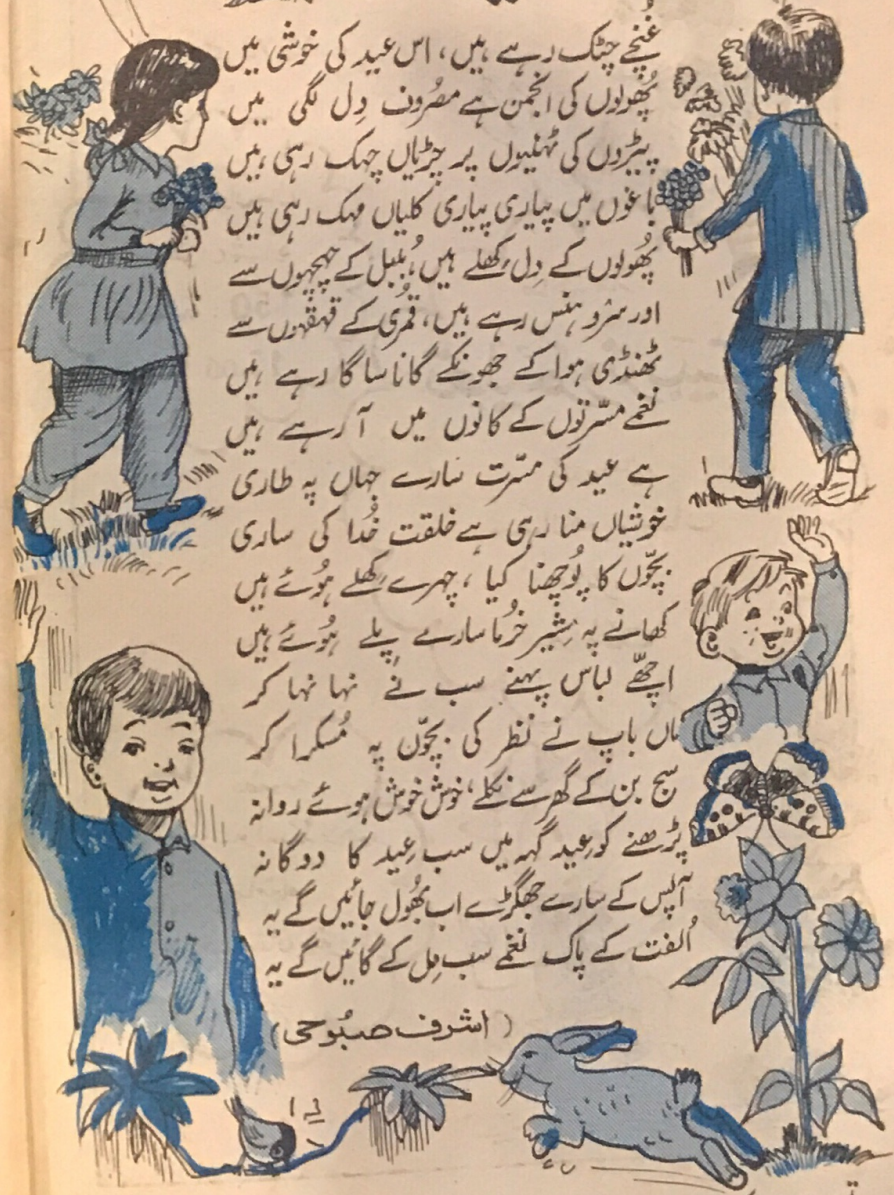 غُنچے چٹک رہے ہیں، اس عید کی خوشی میں
پُھولوں کی انجمن ہے مصرُوف دِل لگی میں
پیڑوں کی ٹہنیوں پر چڑیاں چہک رہی ہیں
باغوں میں پیاری پیاری کلیاں مہک رہی ہیں
پُھولوں کے دِل کِھلے ہیں، بُلبل کے چہچہوں سے
اور سرو ہنس رہے ہیں، قمُری کے قہقہوں سے
ٹھنڈی ہوا کے جھونکے گانا سا گا رہے ہیں
نغمے مسّرتوں کے کانوں میں آ رہے ہیں
ہے عید کی مسّرت سارے جہاں پہ طاری
خوشیاں منا رہی ہے خلقت خُدا کی ساری
بچّوں کا پُوچھنا کیا، چہرے کِھلے ہُوئے ہیں
کھانے پہ شِیر خُرما سارے پِلے ہُوئے ہیں
اچھّے لباس پہنے سب نے نہا نہا کر
ماں باپ نے نظر کی بچّوں پہ مُسکرا کر
سج بن کے گھر سے نکلے، خوش خوش ہوئے روانہ
پڑھنے کو عِید گہہ میں سب عِید کا دوگانہ
آپس کے سارے جھگڑے اب بُھول جائیں گے یہ
اُلفت کے پاک نغمے سب مِل کے گائیں گے یہ
(اشرف صبُوحی)